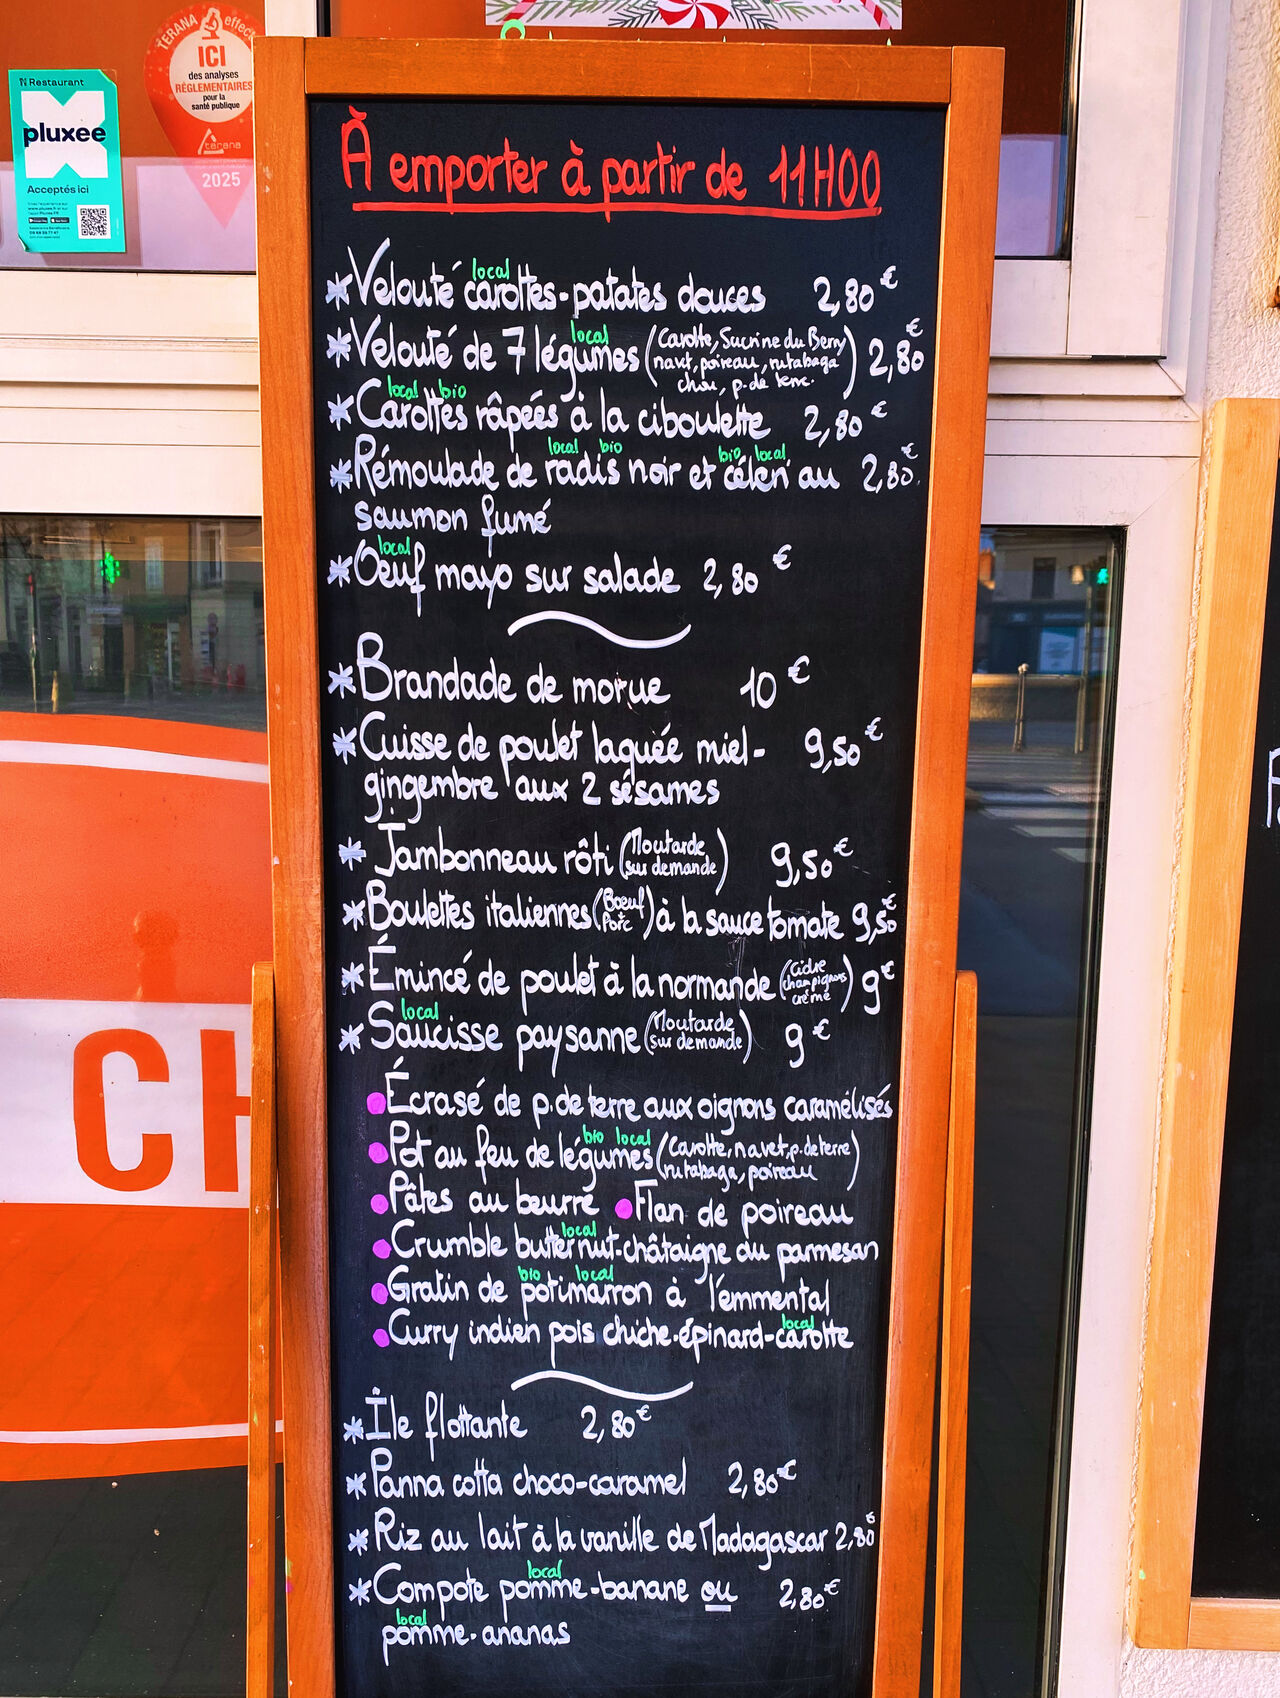 Restaurant
pluxee
Acceptés ici
TERANA effect
ICI
des analyses
RÉGLEMENTAIRES
pour la
santé publique
terana
2025
À emporter à partir de 11H00
local
*Velouté carottes-patates douces 2,80€
local
*Velouté de 7 légumes (Carotte, Sucrine du Berry, navet, poireau, rutabaga, chou, p. de terre.) 2,80€
local bio
*Carottes râpées à la ciboulette 2,80€
local bio bio local
*Rémoulade de radis noir et céleri au 2,80€
saumon fumé
local
*Oeuf mayo sur salade 2,80€
*Brandade de morue 10€
*Cuisse de poulet laquée miel- 9,50€
gingembre aux 2 sésames
*Jambonneau rôti (Moutarde sur demande) 9,50€
*Boulettes italiennes (Boeuf Porc) à la sauce tomate 9,50€
*Émincé de poulet à la normande (Cidre champignons crème) 9€
local
*Saucisse paysanne (Moutarde sur demande) 9€
Écrasé de p. de terre aux oignons caramélisés
bio local
Pot au feu de légumes (Carotte, navet, p. de terre rutabaga, poireau)
Pâtes au beurre Flan de poireau
local
Crumble butternut-châtaigne au parmesan
bio local
Gratin de potimarron à l'emmental
local
Curry indien pois chiche-épinard-carotte
*Île flottante 2,80€
*Panna cotta choco-caramel 2,80€
*Riz au lait à la vanille de Madagascar 2,80€
local
*Compote pomme-banane ou 2,80€
local
pomme-ananas
CH